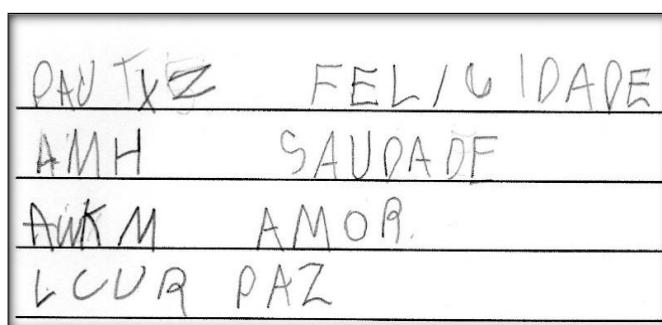 PAUTXZ FELICIDADE
AMH SAUDADE
AWKM AMOR.
LCUR PAZ